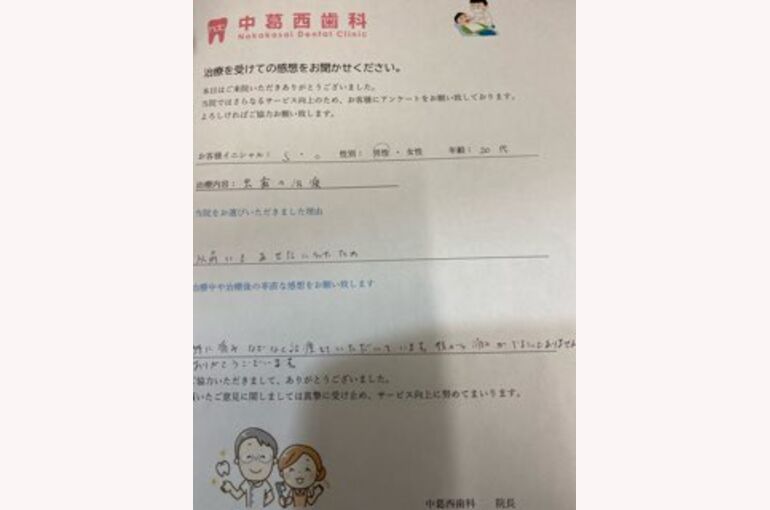 中葛西歯科
Nakakasai Dental Clinic
治療を受けての感想をお聞かせください。
本日はご来院いただきありがとうございました。
当院ではさらなるサービス向上のため、お客様にアンケートをお願い致しております。
よろしければご協力お願い致します。
お客様イニシャル： S ・ o 性別： 男性 ・ 女性 年齢： 20 代
治療内容： 虫歯の治療
当院をお選びいただきました理由
以前にも お世話になったため
治療中や治療後の率直な感想をお願い致します
特に痛み などなく治療していただいています。後から 痛みが でることもありません
ありがとうございます。
ご協力いただきまして、ありがとうございました。
いたご意見に関しましては真摯に受け止め、サービス向上に努めてまいります。
中葛西歯科 院長